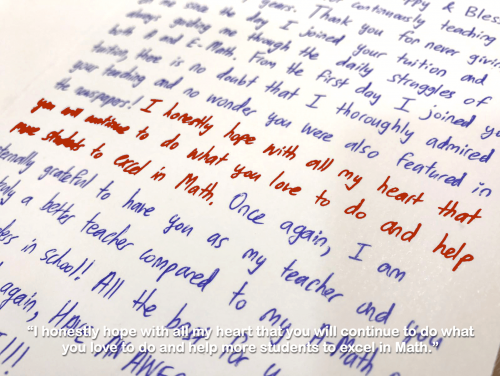 years. Thank you for never
me since the day I joined your tuition and
always guiding me through the daily struggles of
both A and E. Math. From the first day I joined
tuition, there is no doubt that I thoroughly admired
your teaching and no wonder you were also featured in
the newspapers! I honestly hope with all my heart that
you will continue to do what you love to do and help
more students to excel in Math. Once again, I am
grateful to have you as my teacher and you
a better teacher compared to my A Math
in school!! All the
again,
"I honestly hope with all my heart that you will continue to do what
you love to do and help more students to excel in Math."